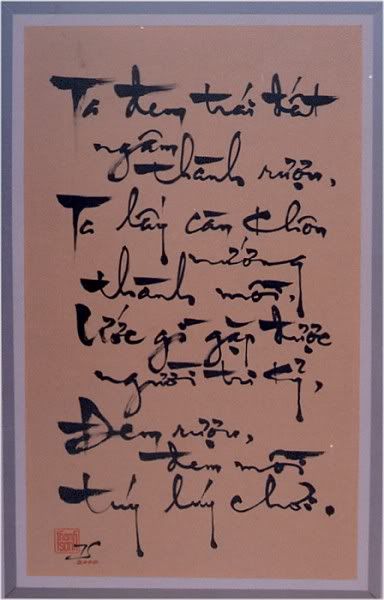 Ta đem trái đất
ngâm
thành rượu,
Ta lấy càn khôn
nướng
thành mồi,
Ước gì gặp được
người tri kỷ,
Đem rượu,
đem mồi
túy lúy chơi.
thanh
sơn
TS
2000